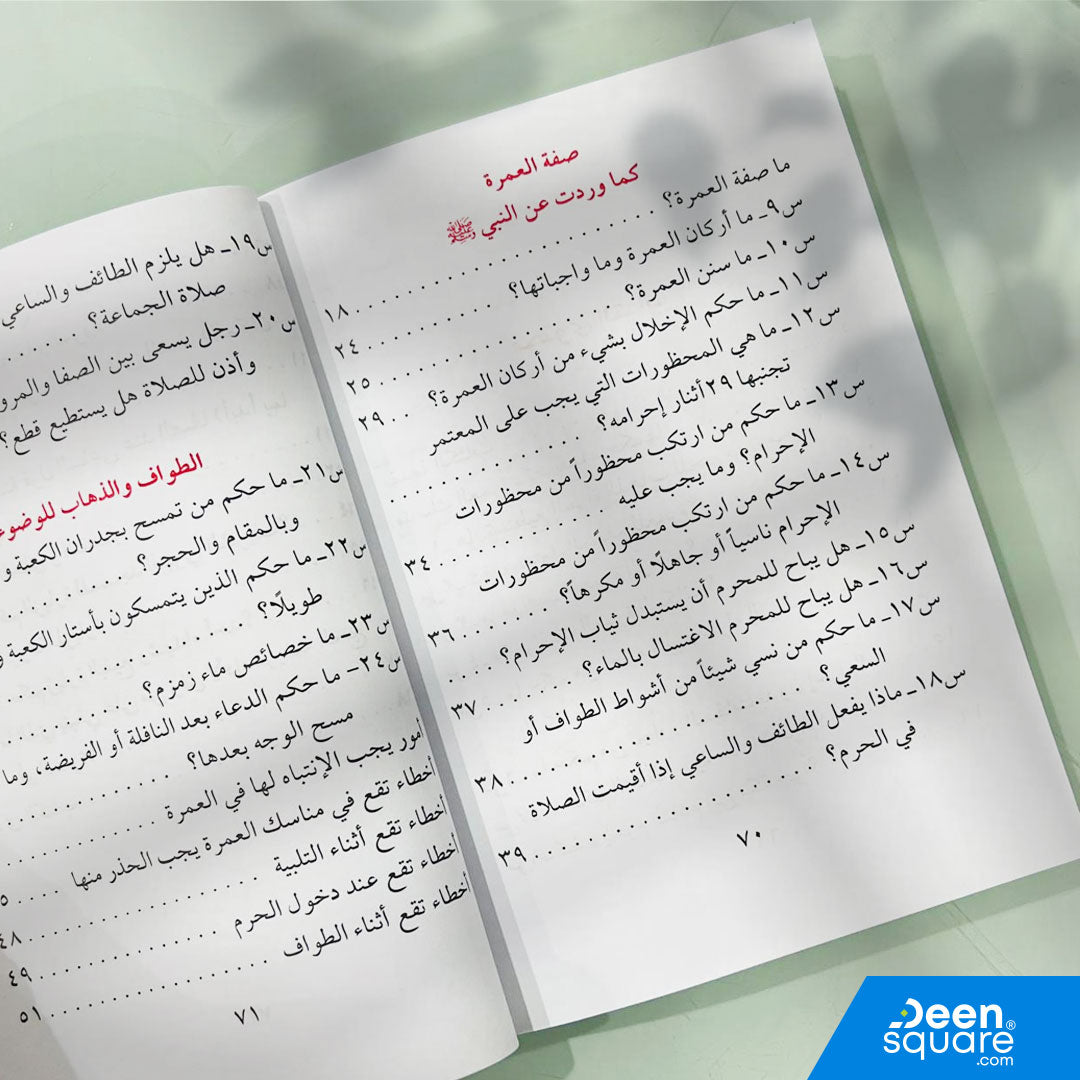 صفة العمرة
كما وردت عن النبي ﷺ
ما صفة العمرة؟ . . . . . . . . . . . . . . . . . . . . ١٨
س٩ـ ما أركان العمرة وما واجباتها؟ . . . . . . . . . . . ٢٤
س١٠ـ ما سنن العمرة؟ . . . . . . . . . . . . . . . . . . ٢٥
س١١ـ ما حكم الإخلال بشيء من أركان العمرة؟ . . ٢٩
س١٢ـ ما هي المحظورات التي يجب على المعتمر
تجنبها ٢٩ أثنار إحرامه؟ . . . . . . . . . . . . . .
س١٣ـ ما حكم من ارتكب محظوراً من محظورات
الإحرام؟ وما يجب عليه . . . . . . . . . . . . . . ٣٤
س١٤ـ ما حكم من ارتكب محظوراً من محظورات
الإحرام ناسياً أو جاهلًا أو مكرهاً؟ . . . . . . . ٣٦
س١٥ـ هل يباح للمحرم أن يستبدل ثياب الإحرام؟ . . . .
س١٦ـ هل يباح للمحرم الاغتسال بالماء؟ . . . . . . . ٣٧
س١٧ـ ما حكم من نسي شيئاً من أشواط الطواف أو
السعي؟ . . . . . . . . . . . . . . . . . . . . ٣٨
س١٨ـ ماذا يفعل الطائف والساعي إذا أقيمت الصلاة
في الحرم؟ . . . . . . . . . . . . . . . . . . . . ٣٩
٧٠
س١٩ـ هل يلزم الطائف والساعي
صلاة الجماعة؟ . . . . . . .
س٢٠ـ رجل يسعى بين الصفا والمرو
وأذن للصلاة هل يستطيع قطع؟
الطواف والذهاب للوضوء
س٢١ـ ما حكم من تمسح بجدران الكعبة و
وبالمقام والحجر؟ . . . . . . . . .
س٢٢ـ ما حكم الذين يتمسكون بأستار الكعبة و
طويلًا؟ . . . . . . . . . . . . . . .
س٢٣ـ ما خصائص ماء زمزم؟ . . . . . . . . .
س٢٤ـ ما حكم الدعاء بعد النافلة أو الفريضة، وما
مسح الوجه بعدها؟ . . . . . . . . . . . .
أمور يجب الإنتباه لها في العمرة . . . . . . . . . . .
أخطاء تقع في مناسك العمرة يجب الحذر منها . . . . ٥
أخطاء تقع أثناء التلبية . . . . . . . . . . . . . . . . ٤٨
أخطاء تقع عند دخول الحرم . . . . . . . . . . . . . ٤٩
أخطاء تقع أثناء الطواف . . . . . . . . . . . . . . . ٥١
٧١
Deen
square®
.com